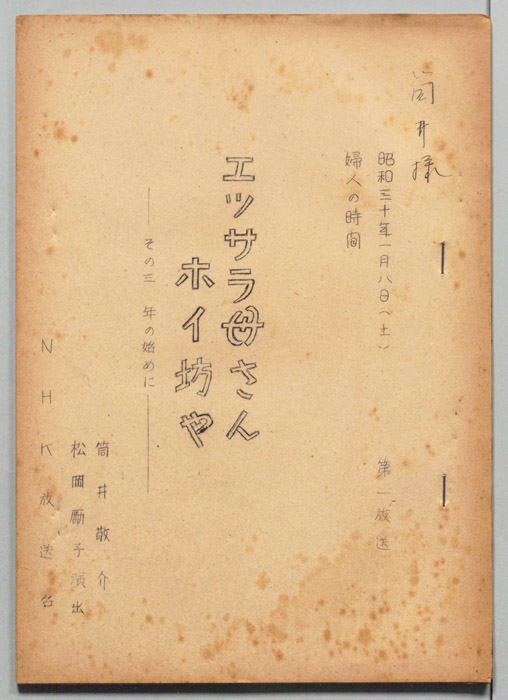 筒井様
昭和三十年一月八日(土) 第一放送
婦人の時間
エッサラ母さん
ホイ坊や
その三 年の始めに
筒井敬介
松岡励子演出
NHK放送台